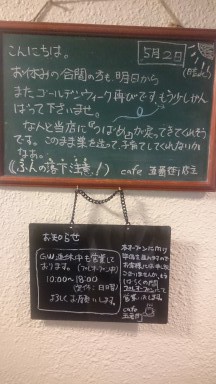 5月2日
こんにちは。
お休みの合間の方も、明日から
またゴールデンウィーク再びです、もう少しがん
ばって下さいませ。
なんと当店に「つばめ」が戻ってきてくれそう
です。このまま巣を造って、子育てしてくれないか
なぁ。
(「ふんの落下注意」!)
cafe 五番街 店主
お知らせ
GW連休中も営業して
おります。
10:00〜18:00
(定休:日曜)
よろしくお願いします。
本オープンに向け
お客様には
cafe
五番街